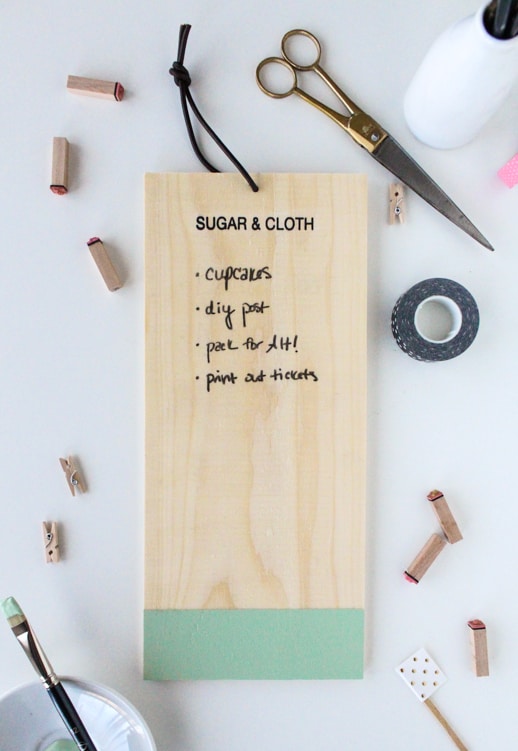 SUGAR & CLOTH
· cupcakes
· diy post
· pack for Alt!
· print out tickets